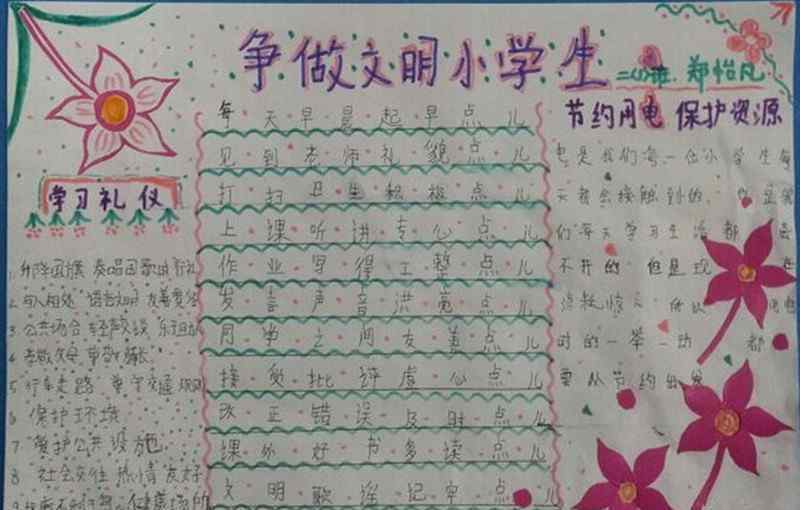 争做文明小学生
二(1)班 郑怡凡
学习礼仪
1 升降国旗 奏唱国歌
2 与人相处 语言文明 友善
3 公共场合 轻声
4
5 行车走路 遵守交通
6 保护环境
7 爱护公共设施
8 社会交往 热情友好
9
每天早晨起早点儿
见到老师礼貌点儿
打扫卫生积极点儿
上课听讲专心点儿
作业写得工整点儿
发言声音洪亮点儿
同学之间友善点儿
接受批评虚心点儿
改正错误及时点儿
课外好书多读点儿
文明歌谣记牢点儿
节约用电 保护资源
电是我们每一位小学生每
天都会接触到的。也是我
们每天学习生活都
不开的 但是现
消耗惊
时的一举一动 都
要从节约出发